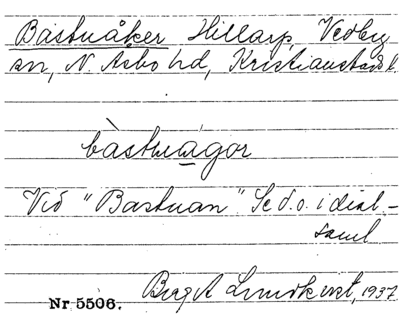 Bastuåker Hillarp, Vedby
sn, N. Åsbo hd, Kristianstads l.
bàstuágor
Vid "Bastuan". Se d.o. i dial-
saml
Birgit Lundkvist, 1937
Nr 5506.